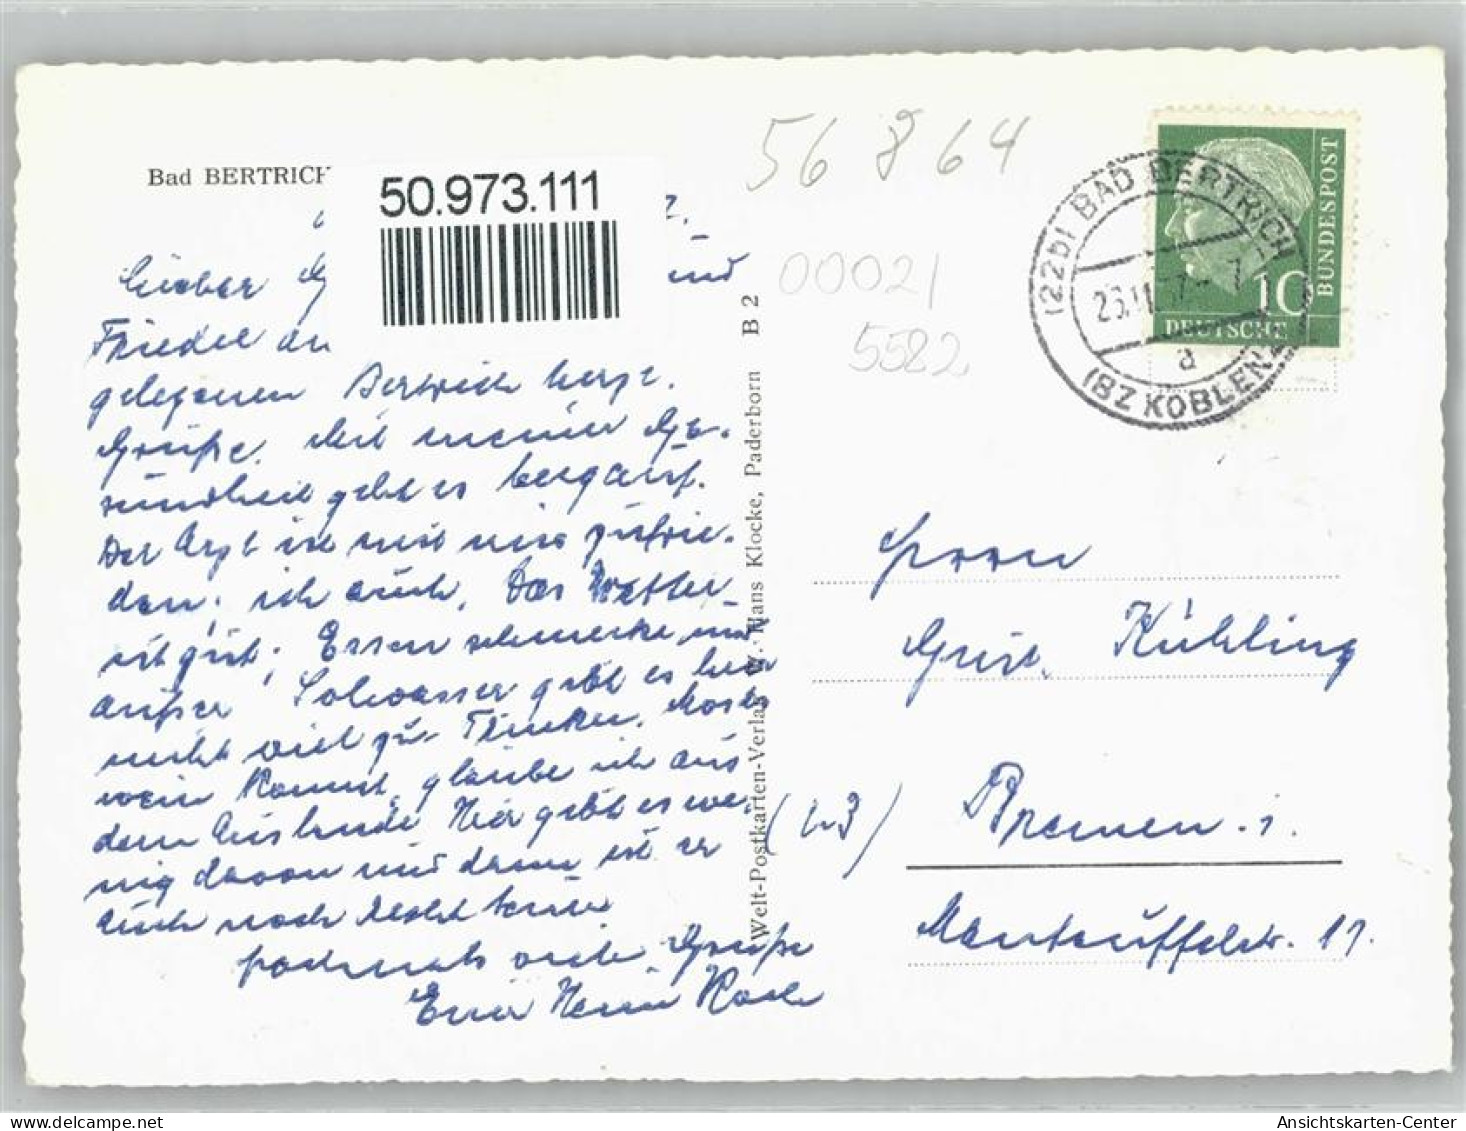 Bad BERTRICH
50.973.111
56 864
00021
5582
(22b) BAD BERTRICH
(BZ KOBLENZ
a
BUNDESPOST
10
DEUTSCHE
Lieber
und
Friedel
gelegenen Bertrich herzl.
Grüße. Mit meiner Ge-
sundheit geht es bergauf.
Der Arzt ist mit mir zufrie-
den; ich auch. Das Wetter
ist gut; Essen schmeckt, und
außer Solwasser gibt es hier
nicht viel zu Trinken. Mosel
wein kommt, glaube ich aus
dem Auslande. Hier gibt es we-
nig davon und dann ist er
auch noch recht teuer
nochmals viele Grüße
Euer
Welt-Postkarten-Verlag Hans Klocke, Paderborn B 2
Herrn
Gust. Kühling
(23) Bremen. 1.
Manteuffelstr. 11.
delcampe.net
Ansichtskarten-Center